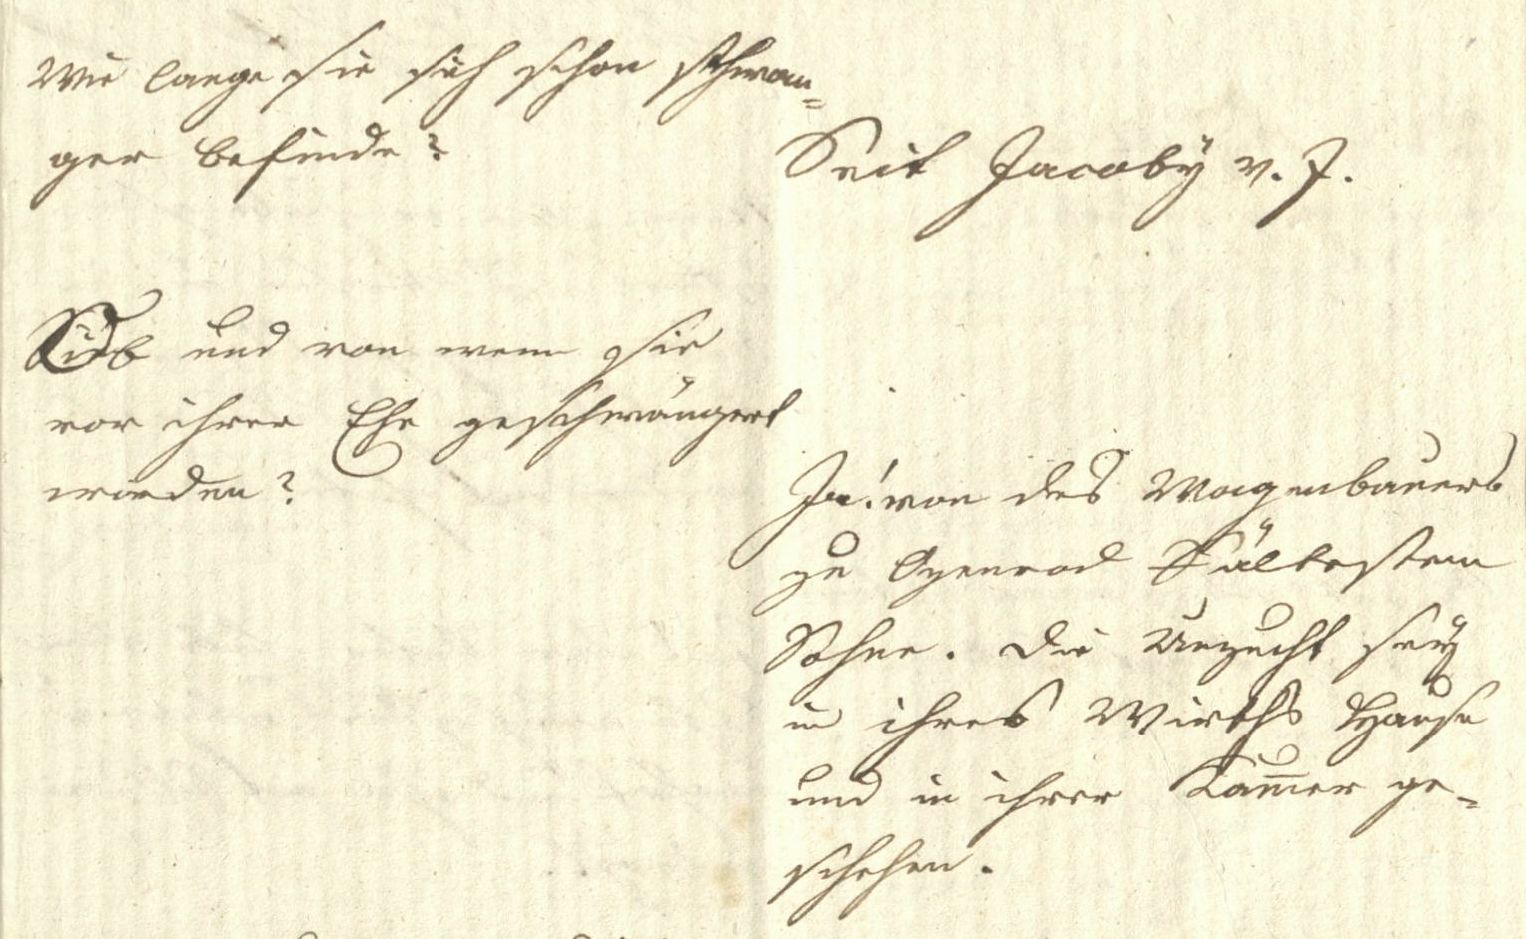 Wie lange sie sich schon schwan=
ger befinde?
Seit Jacoby v. J.
Ob und von wem sie
vor ihrer Ehe geschwängert
worden?
Ja! von des Wagenbauers
zu ältestem
Sohne. Die Unzucht sey
in ihres Wirths Hause
und in ihrer Kam̄er ge=
schehen.